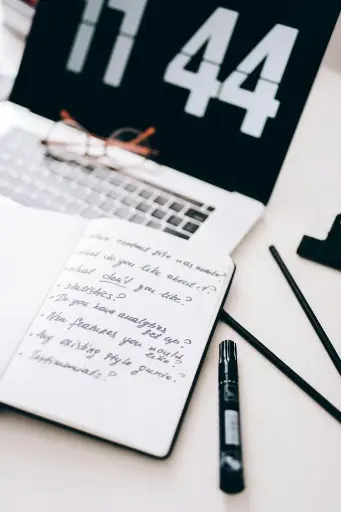 11 44
- When current site was made?
- What do you like about it?
- What don't you like?
- Statistics?
- Do you have analytics
set up?
- New features you would
like?
- Any existing style guide?
- Testimonials?